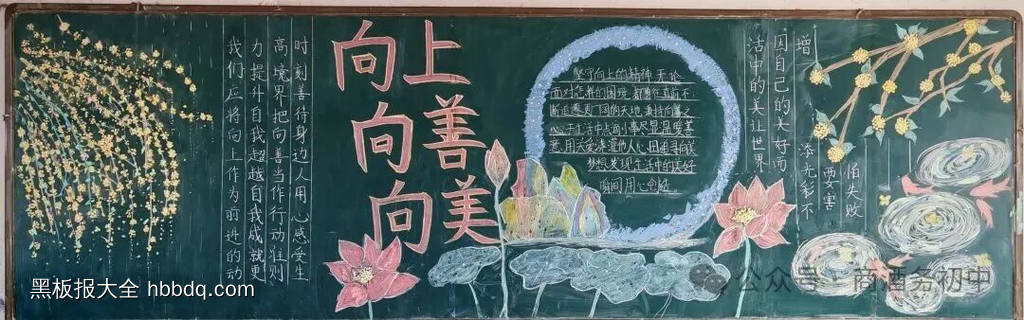 向上
向善
向美
我们应将向上作为前进的动
力提升自我超越自我成就更
高境界把向善当作行动准则
时刻善待身边人用心感受生
活中的美让世界
因自己的美好而
增添光彩不
要害
怕失败
坚守向上的精神 无论
面对怎样的困境 都勇往直前不
断追逐更广阔的天地 秉持向善之
心于生活中点滴小事尽显温暖善
意,用关爱滋润他人心田追寻向美
梦想发现生活中的美好
瞬间用心创造。
黑板报大全 hbbdq.com
公众号·商酒务初中